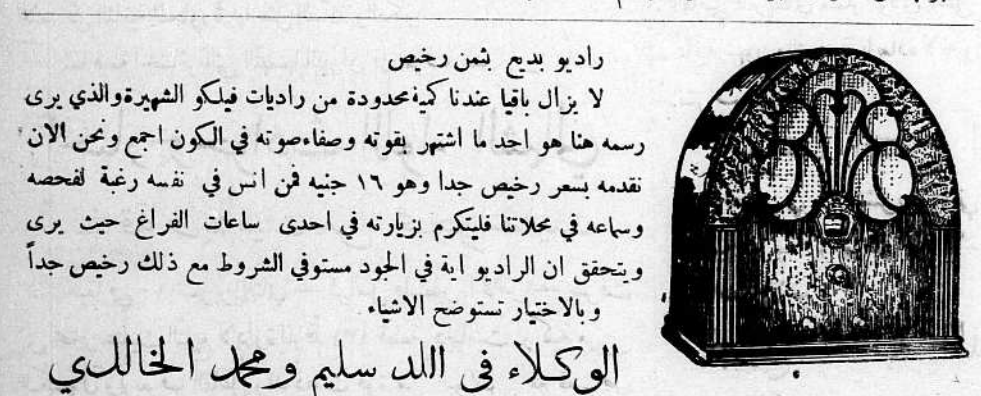 راديو بديع بثمن رخيص
لا يزال باقيا عندنا كمية محدودة من راديات فيلكو الشهيرة والذي يرى
رسمه هنا هو احد ما اشتهر بقوته وصفاء صوته في الكون اجمع ونحن الان
نقدمه بسعر رخيص جدا وهو ١٦ جنيه فمن انس في نفسه رغبة لفحصه
وسماعه في محلاتنا فليتكرم بزيارته في احدى ساعات الفراغ حيث يرى
ويتحقق ان الراديو اية في الجود مستوفي الشروط مع ذلك رخيص جداً
وبالاختيار تستوضح الاشياء
الوكلاء في اللد سليم ومحمد الخالدي